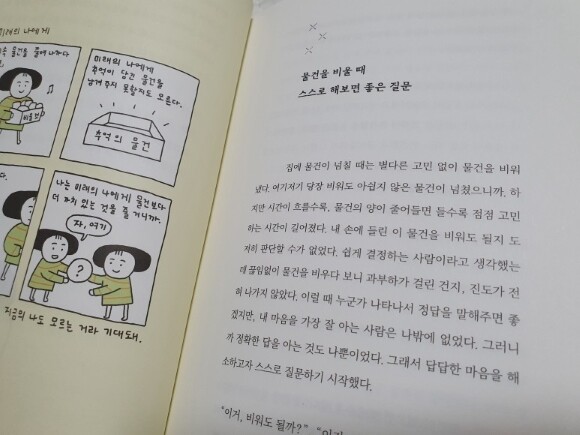 미래의 나에게
물건을 들여 나가다
미래의 나에게
추억이 담긴 물건을
남겨 주지 못할지도 모른다.
추억의 물건
나는 미래의 나에게 물건보다
더 가치 있는 것을 줄 거니까.
자, 여기
?
지금의 나도 모르는 거라 기대돼.
물건을 비울 때
스스로 해보면 좋은 질문
집에 물건이 넘칠 때는 별다른 고민 없이 물건을 비워
냈다. 여기저기 당장 비워도 아쉽지 않은 물건이 넘쳤으니까. 하
지만 시간이 흐를수록, 물건의 양이 줄어들면 들수록 점점 고민
하는 시간이 길어졌다. 내 손에 들린 이 물건을 비워도 될지 도
저히 판단할 수가 없었다. 쉽게 결정하는 사람이라고 생각했는
데 끊임없이 물건을 비우다 보니 과부하가 걸린 건지, 진도가 전
혀 나가지 않았다. 이럴 때 누군가 나타나서 정답을 말해주면 좋
겠지만, 내 마음을 가장 잘 아는 사람은 나밖에 없었다. 그러니
까 정확한 답을 아는 것도 나뿐이었다. 그래서 답답한 마음을 해
소하고자 스스로 질문하기 시작했다.
"이거, 비워도 될까?"